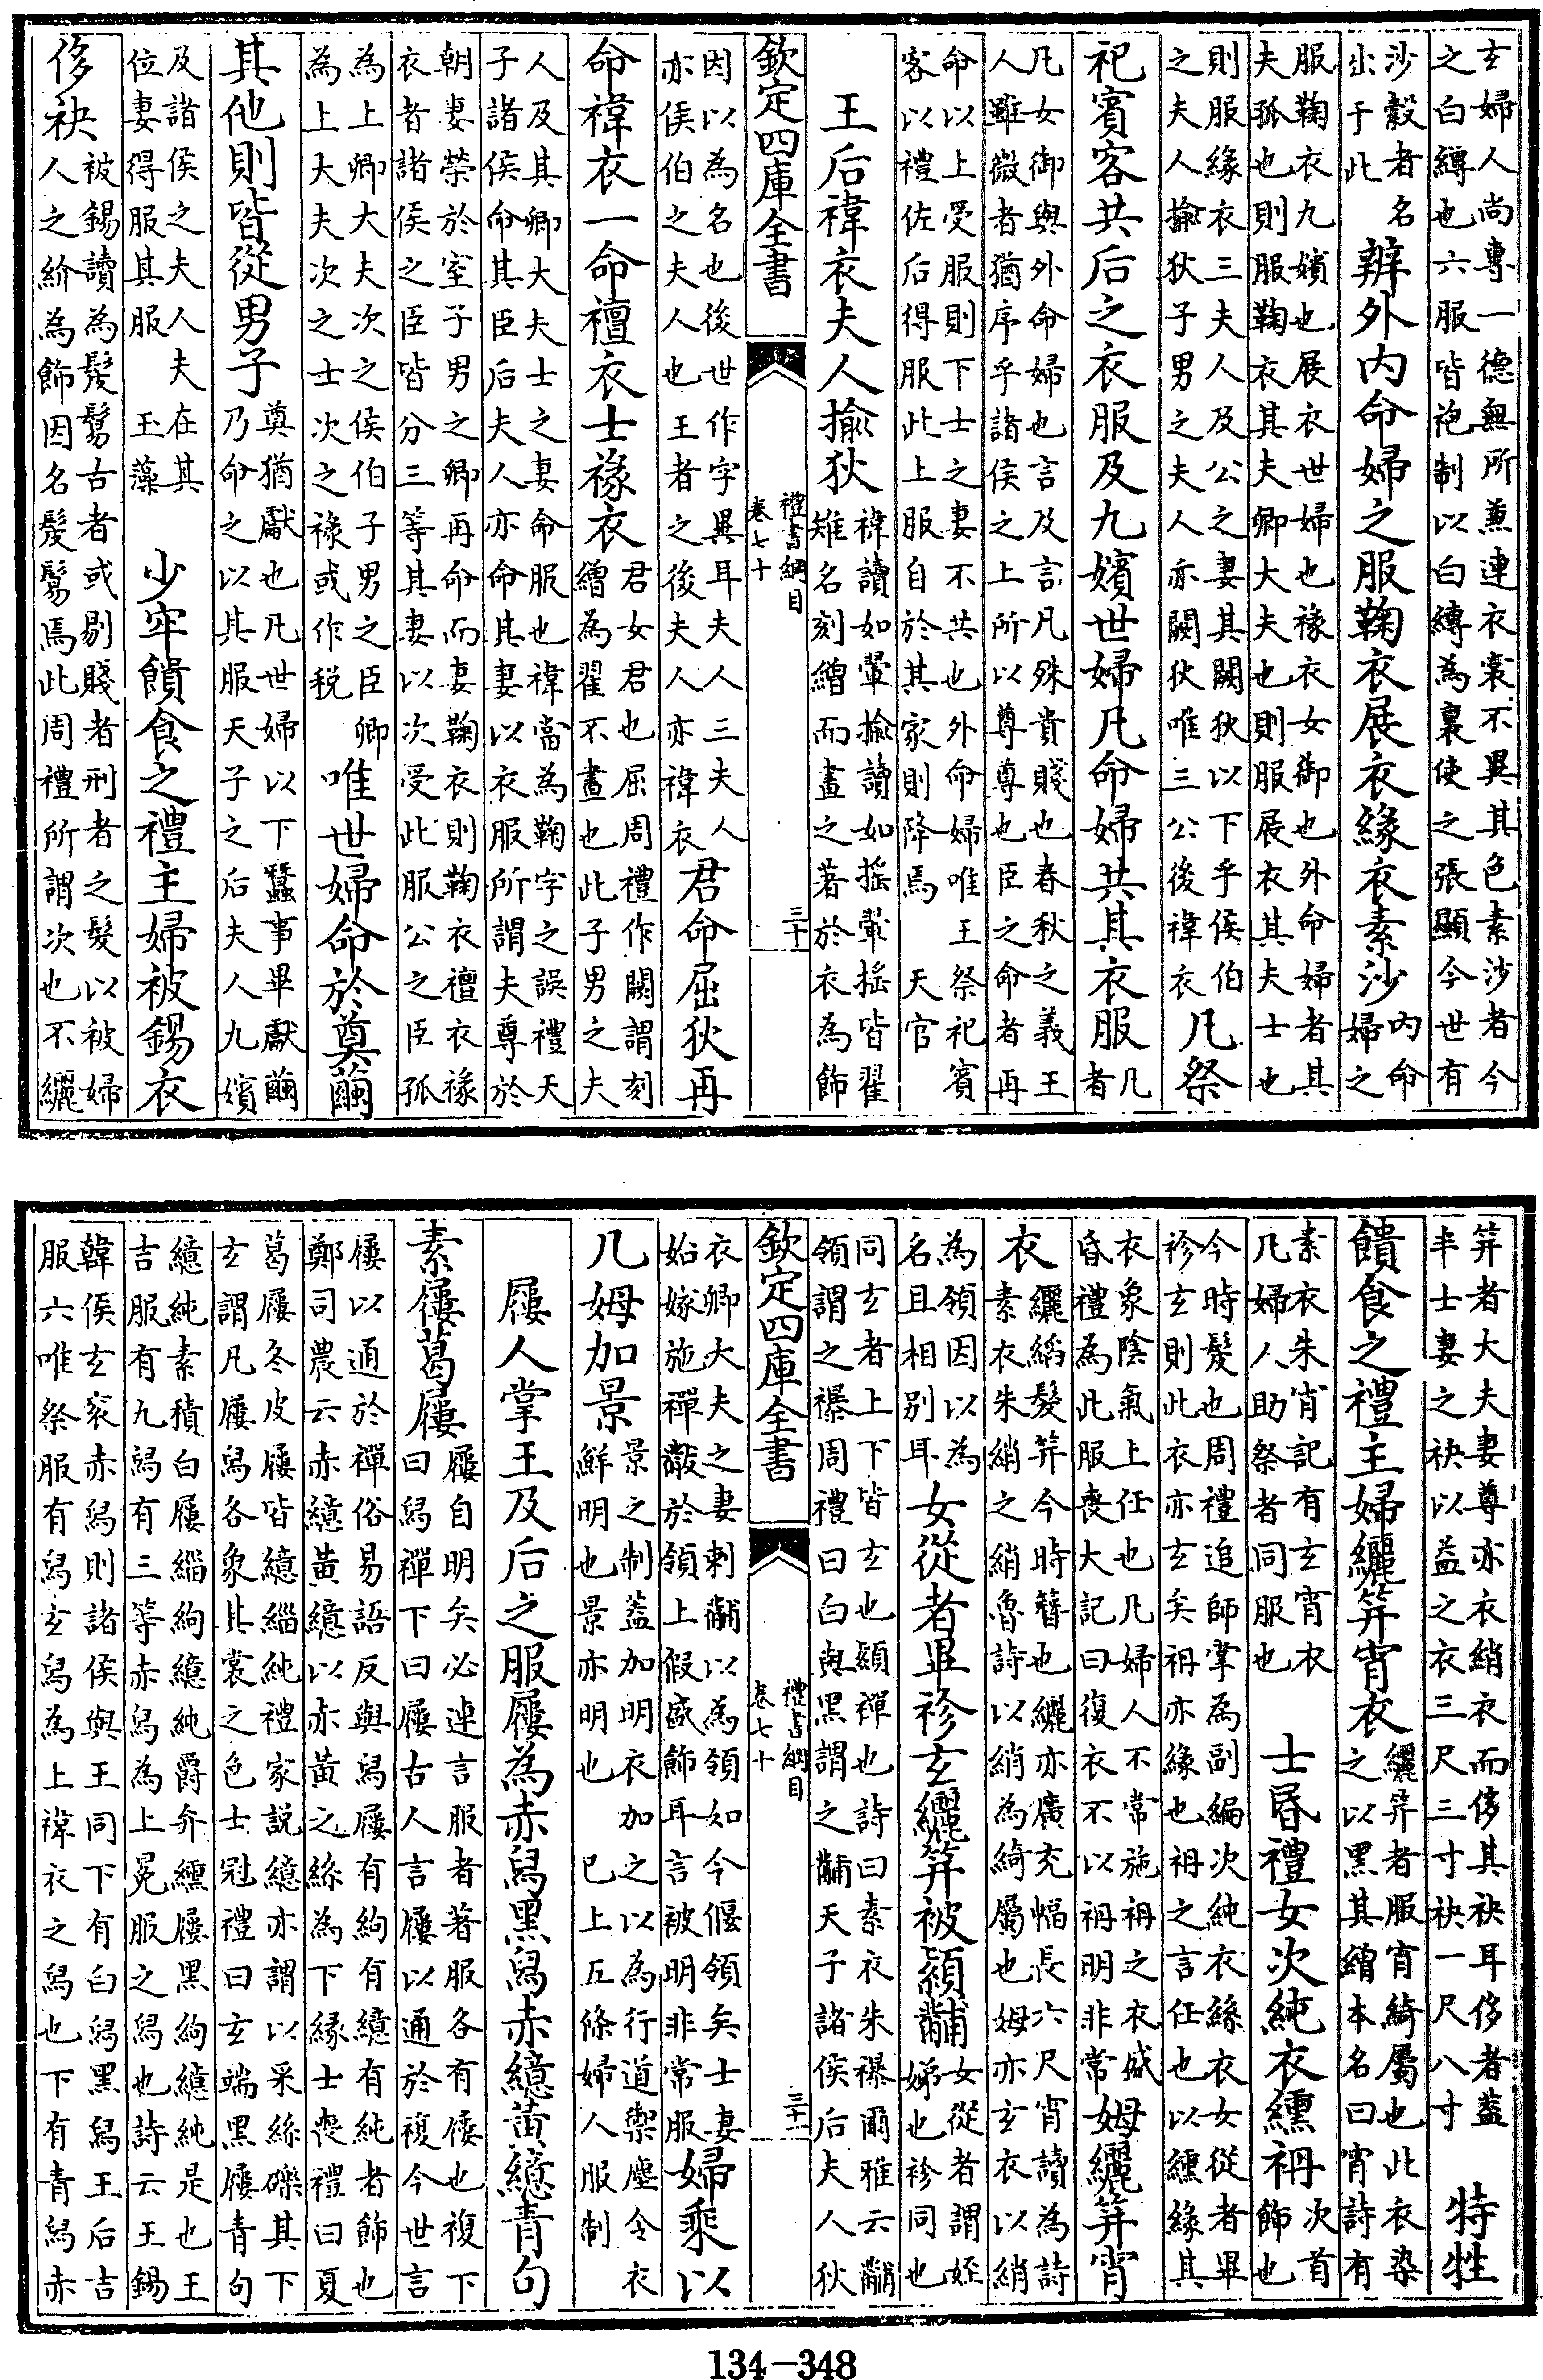 玄婦人尚專一德無所兼連衣裳不異其色素沙者今
之白縳也六服皆袍制以白縳為裏使之張顯今世有
沙縠者名
出于此
辨外内命婦之服鞠衣展衣緣衣素沙
内命
婦之
服鞠衣九嬪也展衣世婦也褖衣女御也外命婦者其
夫孤也則服鞠衣其夫卿大夫也則服展衣其夫士也
則服緣衣三夫人及公之妻其闕狄以下乎侯伯
之夫人揄狄子男之夫人亦闕狄唯三公後禕衣
凡祭
祀賓客共后之衣服及九嬪世婦凡命婦共其衣服
凡
者
凡女御與外命婦也言及言凡殊貴賤也春秋之義王
人雖微者猶序乎諸侯之上所以尊尊也臣之命者再
命以上受服則下士之妻不共也外命婦唯王祭祀賓
客以禮佐后得服此上服自於其家則降焉 天官
王后禕衣夫人揄狄
禕讀如翬揄讀如搖翬搖皆翟
雉名刻繒而畫之著於衣為飾
欽定四庫全書
禮書綱目
卷七十
三十
因以為名也後世作字異耳夫人三夫人
亦侯伯之夫人也王者之後夫人亦禕衣
君命屈狄再
命禕衣一命襢衣士褖衣
君女君也屈周禮作闕謂刻
繒為翟不畫也此子男之夫
人及其卿大夫士之妻命服也禕當為鞠字之誤禮天
子諸侯命其臣后夫人亦命其妻以衣服所謂夫尊於
朝妻榮於室子男之卿再命而妻鞠衣則鞠衣襢衣褖
衣者諸侯之臣皆分三等其妻以次受此服公之臣孤
為上卿大夫次之侯伯子男之臣卿
為上大夫次之士次之褖或作税
唯世婦命於奠繭
其他則皆從男子
奠猶獻也凡世婦以下蠶事畢獻繭
乃命之以其服天子之后夫人九嬪
及諸侯之夫人夫在其
位妻得服其服 玉藻
少牢饋食之禮主婦被錫衣
侈袂
被錫讀為髲鬄古者或剔賤者刑者之髮以被婦
人之紒為飾因名髲鬄焉此周禮所謂次也不纚
笄者大夫妻尊亦衣綃衣而侈其袂耳侈者蓋
半士妻之袂以益之衣三尺三寸袂一尺八寸
特牲
饋食之禮主婦纚笄宵衣
纚笄者服宵綺屬也此衣染
之以黑其繒本名曰宵詩有
素衣朱宵記有玄宵衣
凡婦人助祭者同服也
士昏禮女次純衣纁袡
次首
飾也
今時髲也周禮追師掌為副編次純衣絲衣女從者畢
袗玄則此衣亦玄矣袡亦緣也袡之言任也以纁緣其
衣象陰氣上任也凡婦人不常施袡之衣盛
昏禮為此服喪大記曰復衣不以袡明非常
姆纚笄宵
衣
纚縚髮笄今時簪也纚亦廣充幅長六尺宵讀為詩
素衣朱綃之綃魯詩以綃為綺屬也姆亦玄衣以綃
為領因以為
名且相别耳
女從者畢袗玄纚笄被潁黼
女從者謂姪
娣也袗同也
同玄者上下皆玄也潁襌也詩曰素衣朱襮爾雅云黼
領謂之襮周禮曰白與黑謂之黼天子諸侯后夫人狄
欽定四庫全書
禮書綱目
卷七十
三十一
衣卿大夫之妻刺黼以為領如今偃領矣士妻
始嫁施襌黻於領上假盛飾耳言被明非常服
婦乘以
几姆加景
景之制蓋加明衣加之以為行道禦塵令衣
鮮明也景亦明也 已上五條婦人服制
屨人掌王及后之服屨為赤舄黑舄赤繶黄繶青句
素屨葛屨
屨自明矣必連言服者著服各有屨也複下
曰舄襌下曰屨古人言屨以通於複今世言
屨以通於襌俗易語反與舄屨有絇有繶有純者飾也
鄭司農云赤繶黄繶以赤黄之絲為下緣士喪禮曰夏
葛屨冬皮屨皆繶緇純禮家説繶亦謂以采絲礫其下
玄謂凡屨舄各象其裳之色士冠禮曰玄端黑屨青句
繶純素積白屨緇絇繶純爵弁纁屨黑絇繶純是也王
吉服有九舄有三等赤舄為上冕服之舄也詩云王錫
韓侯玄衮赤舄則諸侯與王同下有白舄黑舄王后吉
服六唯祭服有舄玄舄為上褘衣之舄也下有青舄赤
134-348